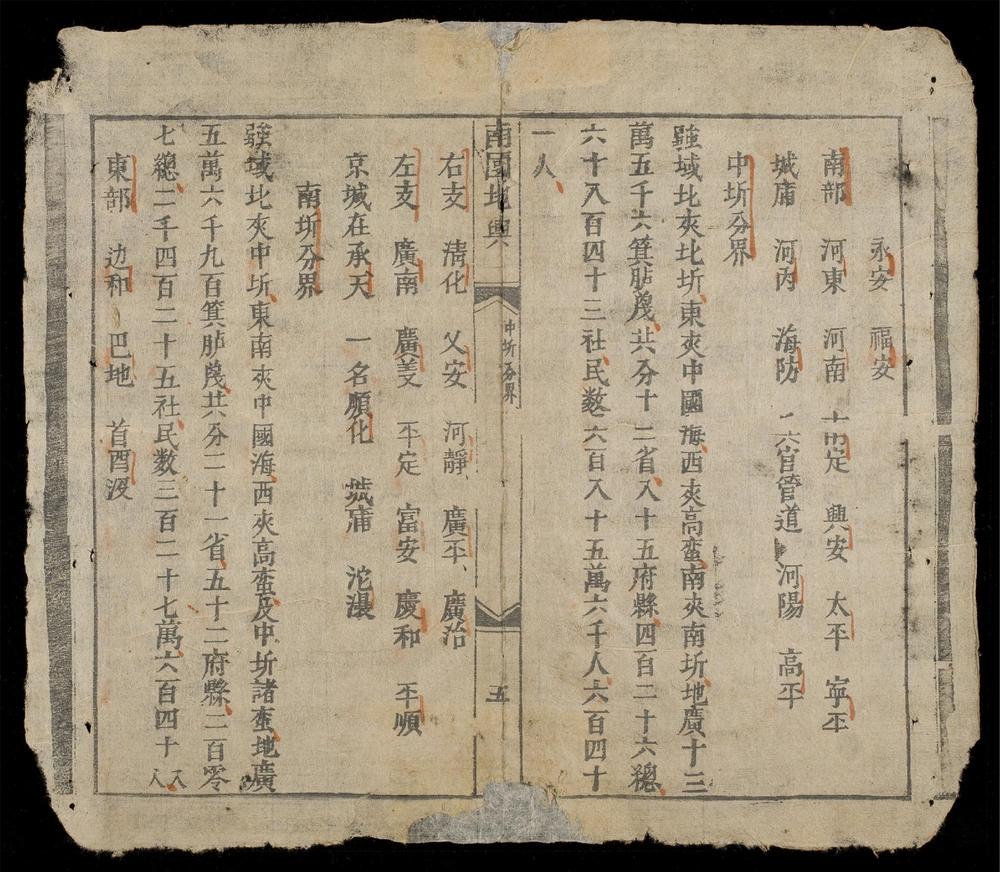 永安 福安
南部 河東 河南 南定 興安 太平 寧平
城庯 河內 海防 六省管道 河陽 高平
中圻分界
疆域北夾北圻東夾中國海西夾高蛮南夾南圻地廣十三
萬五千六箕胪蔑共分十二省八十五府縣四百二十六總
六十八百四十三社民数六百八十五萬六千人六百四十
一人
南國地輿 中圻分界 五
右支 清化 乂安 河靜 廣平 廣治
左支 廣南 廣義 平定 富安 慶和 平順
京城在承天 一名順化 城庯 沱瀼
南圻分界
疆域北夾中圻東南夾中國海西夾高蛮及中圻諸蛮地廣
五萬六千九百箕胪蔑共分二十一省五十二府縣二百零
七總二千四百二十五社民数三百二十七萬六百四十八人
東部 边和 巴地 首